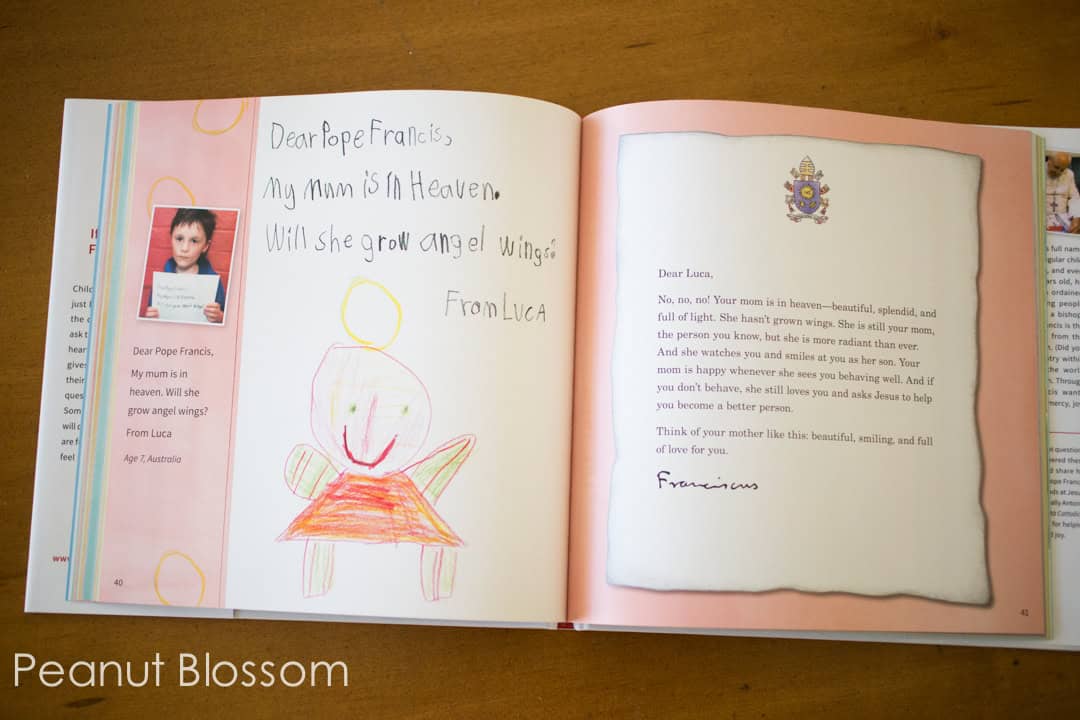 Dear Pope Francis,
My mum is in Heaven.
Will she grow angel wings?
From Luca
Dear Pope Francis,
My mum is in
heaven. Will she
grow angel wings?
From Luca
Age 7, Australia
40
Dear Luca,
No, no, no! Your mom is in heaven—beautiful, splendid, and
full of light. She hasn't grown wings. She is still your mom,
the person you know, but she is more radiant than ever.
And she watches you and smiles at you as her son. Your
mom is happy whenever she sees you behaving well. And if
you don't behave, she still loves you and asks Jesus to help
you become a better person.
Think of your mother like this: beautiful, smiling, and full
of love for you.
Franciscus
41
Peanut Blossom